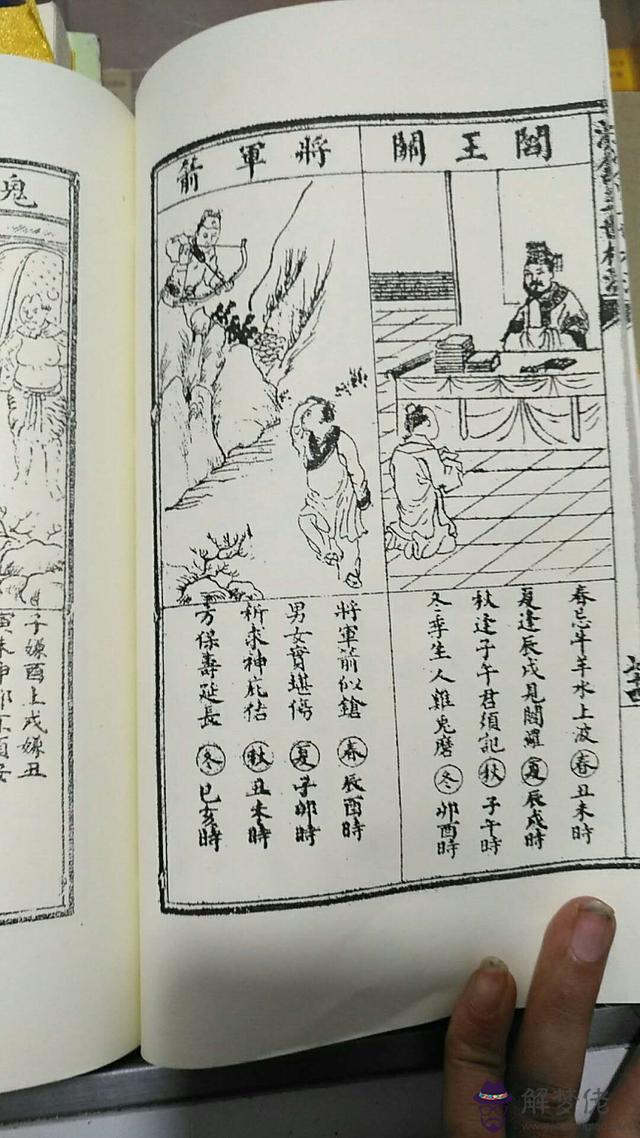 閻王關
春忌牛羊水上波 春 丑未時
夏逢辰戌見閻羅 夏 辰戌時
秋逢子午君須記 秋 子午時
冬季生人雞兔磨 冬 卯酉時
將軍箭
將軍箭似鎗 春 辰酉時
男女實堪傷 夏 子卯時
祈求神庇佑 秋 丑未時
方保壽延長 冬 巳亥時
鬼
子嫌酉上戌嫌丑
解梦佬